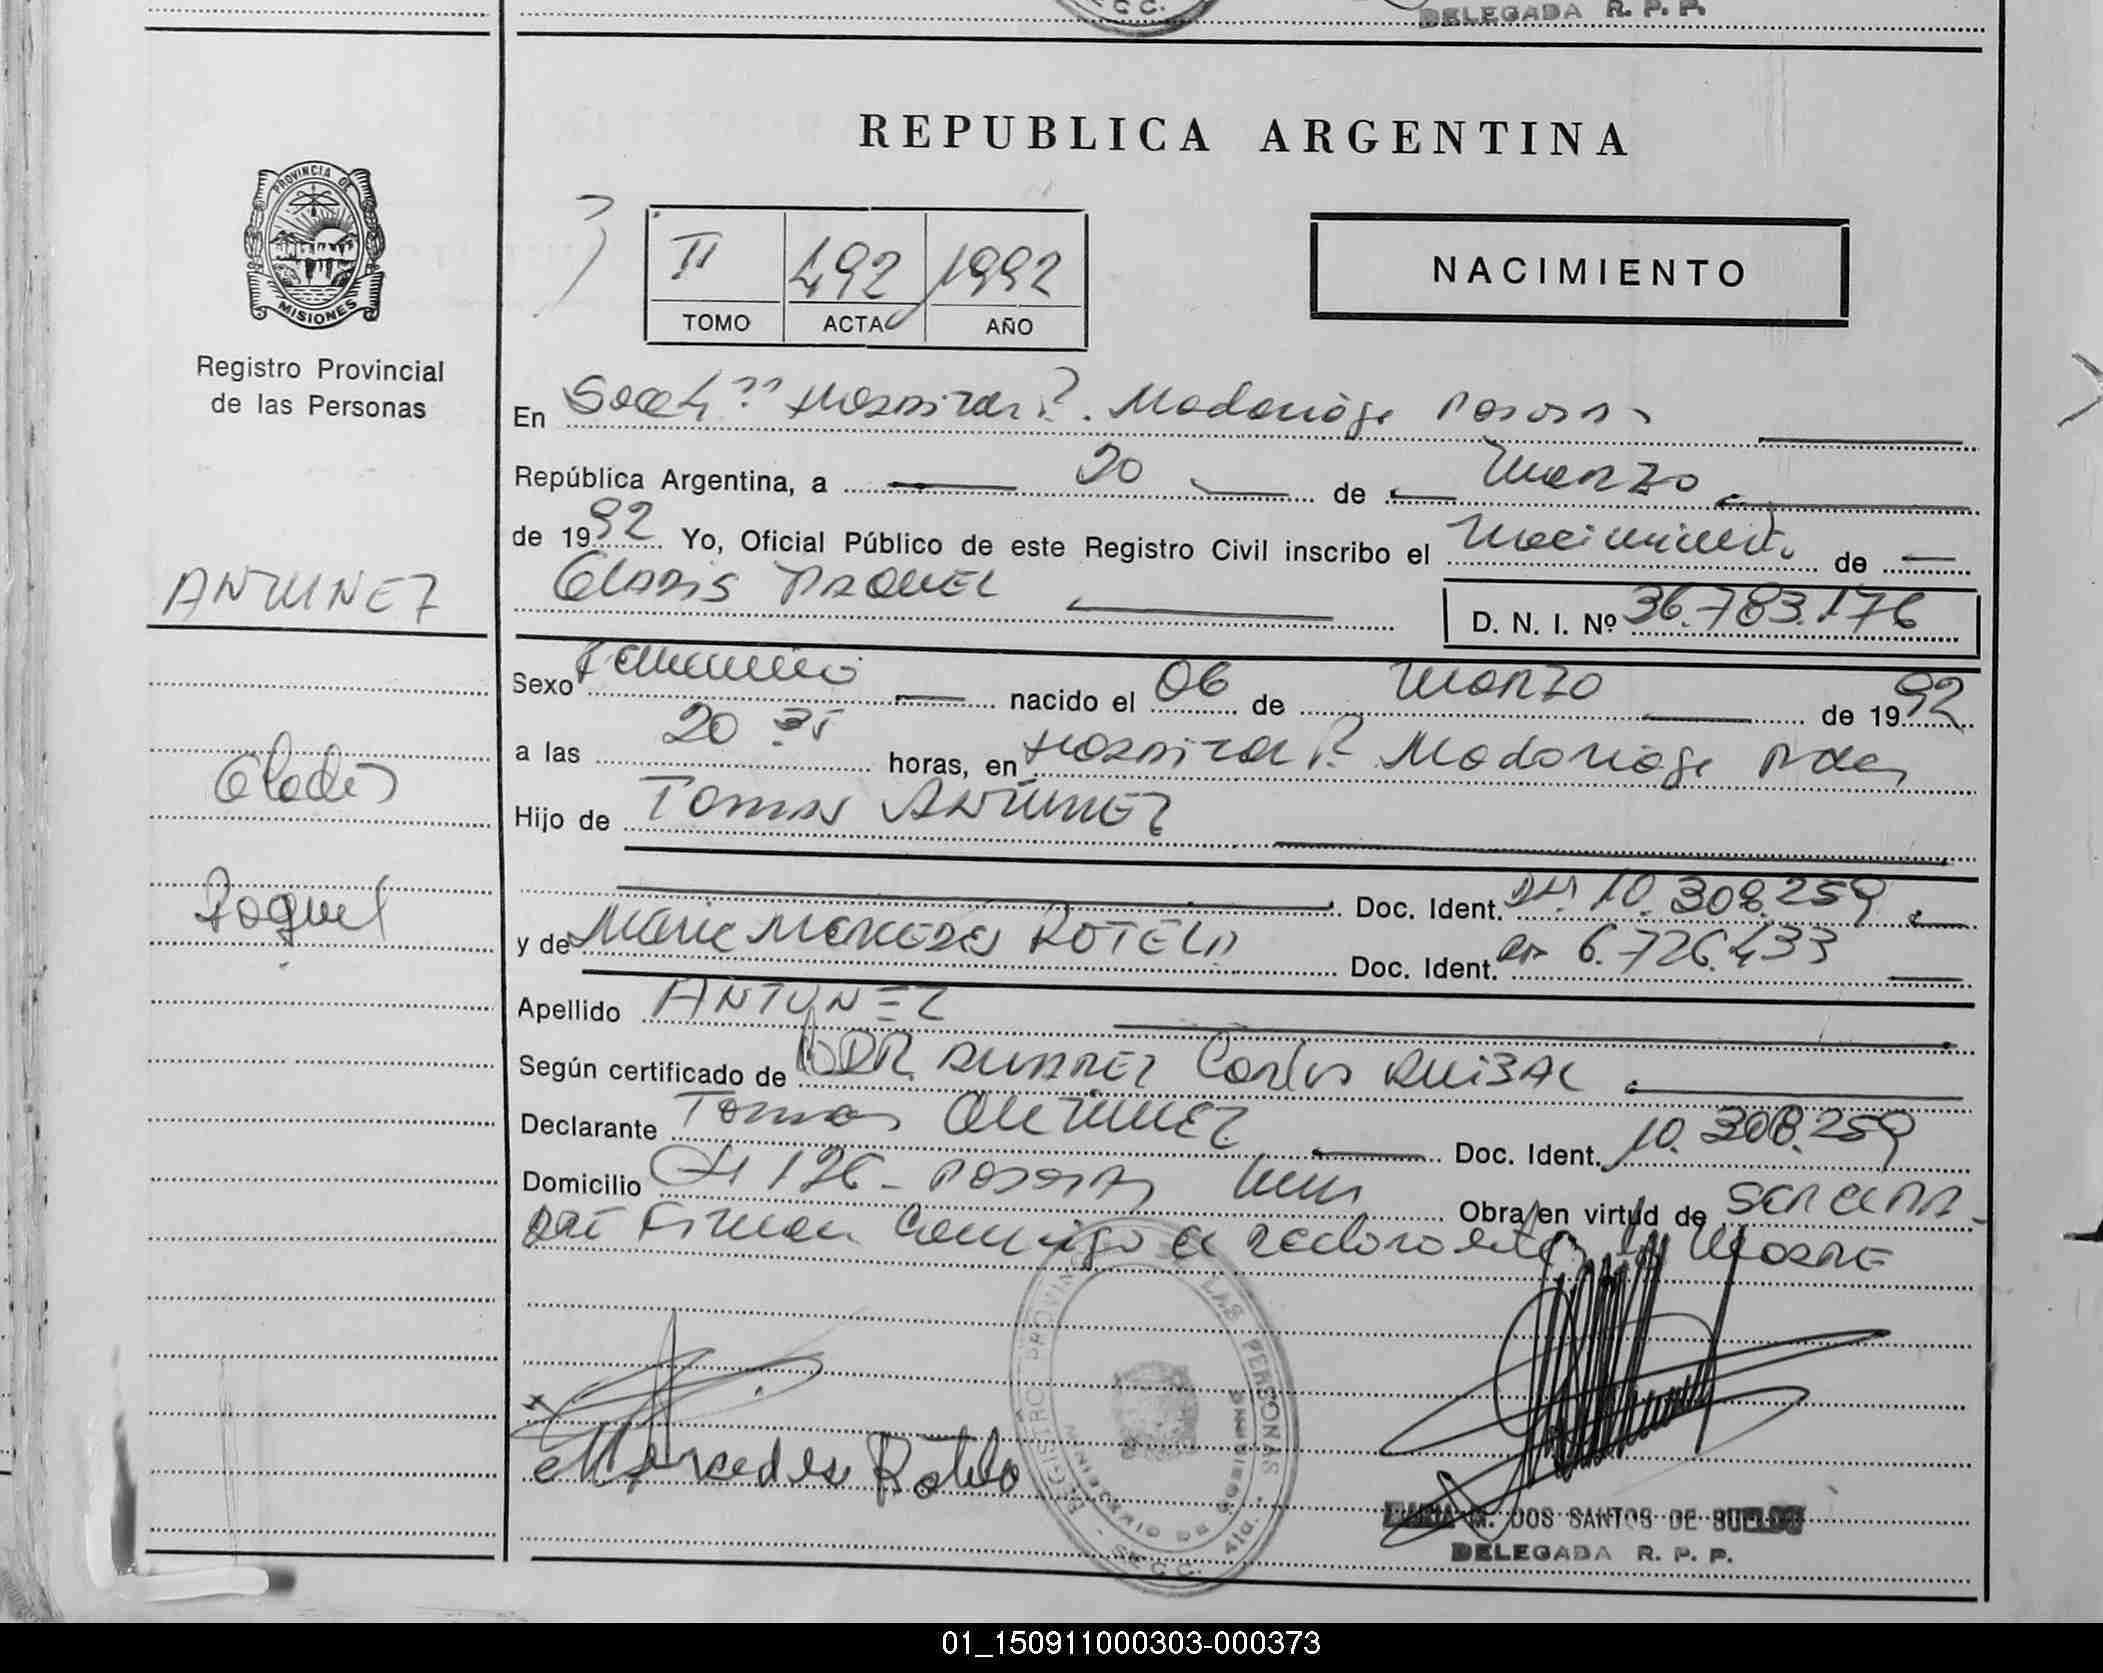 DELEGADA R. P. P.
REPUBLICA ARGENTINA
PROVINCIA DE
MISIONES
Registro Provincial
de las Personas
II 492 1992
TOMO ACTA AÑO
NACIMIENTO
En Secc 4ª Hospital R. Madariaga Posadas
República Argentina, a 20 de Marzo
de 1992 Yo, Oficial Público de este Registro Civil inscribo el Nacimiento de
ANTUNEZ
GLADIS RAQUEL
D. N. I. Nº 36.783.176
Sexo Femenino nacido el 06 de Marzo de 1992
Gladis
a las 20 35 horas, en Hospital R. Madariaga Pdas
Hijo de Tomas ANTUNEZ
Raquel
Doc. Ident. DNI 10.308.259
y de Maria MERCEDES ROTELA Doc. Ident. 6.726.433
Apellido ANTUNEZ
Según certificado de DR. Carlos
Declarante Tomas Antunez Doc. Ident. 10.308.259
Domicilio 126 - Posadas Obra en virtud de
Firman Conmigo el declarante y la MADRE
REGISTRO PROVINCIAL DE LAS PERSONAS
MISIONES
SECC. 4ta.
Mercedes Rotela
MARIA M. DOS SANTOS DE
DELEGADA R. P. P.
01_150911000303-000373